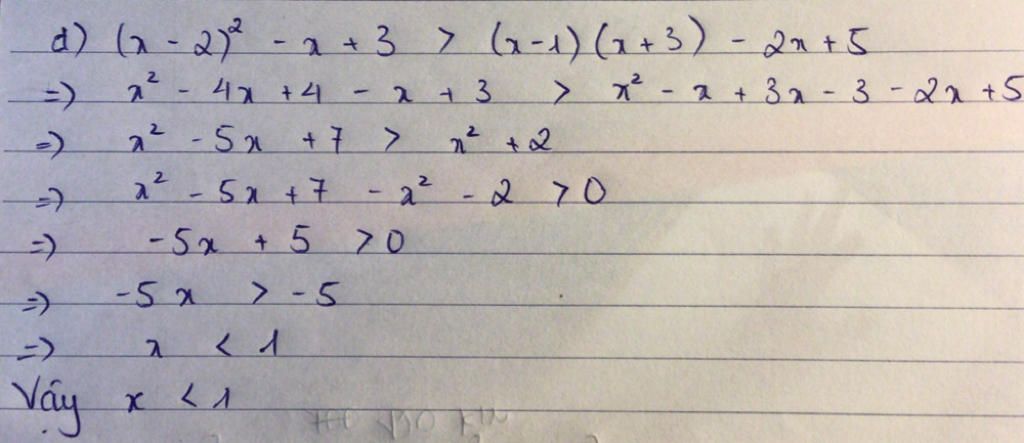 d) (x - 2)² - x + 3 > (x-1)(x+3) - 2x + 5
=) x² - 4x + 4 - x + 3 > x² - x + 3x - 3 - 2x + 5
=) x² - 5x + 7 > x² + 2
=) x² - 5x + 7 - x² - 2 > 0
=) -5x + 5 > 0
=) -5x > -5
=) x < 1
Vậy x < 1